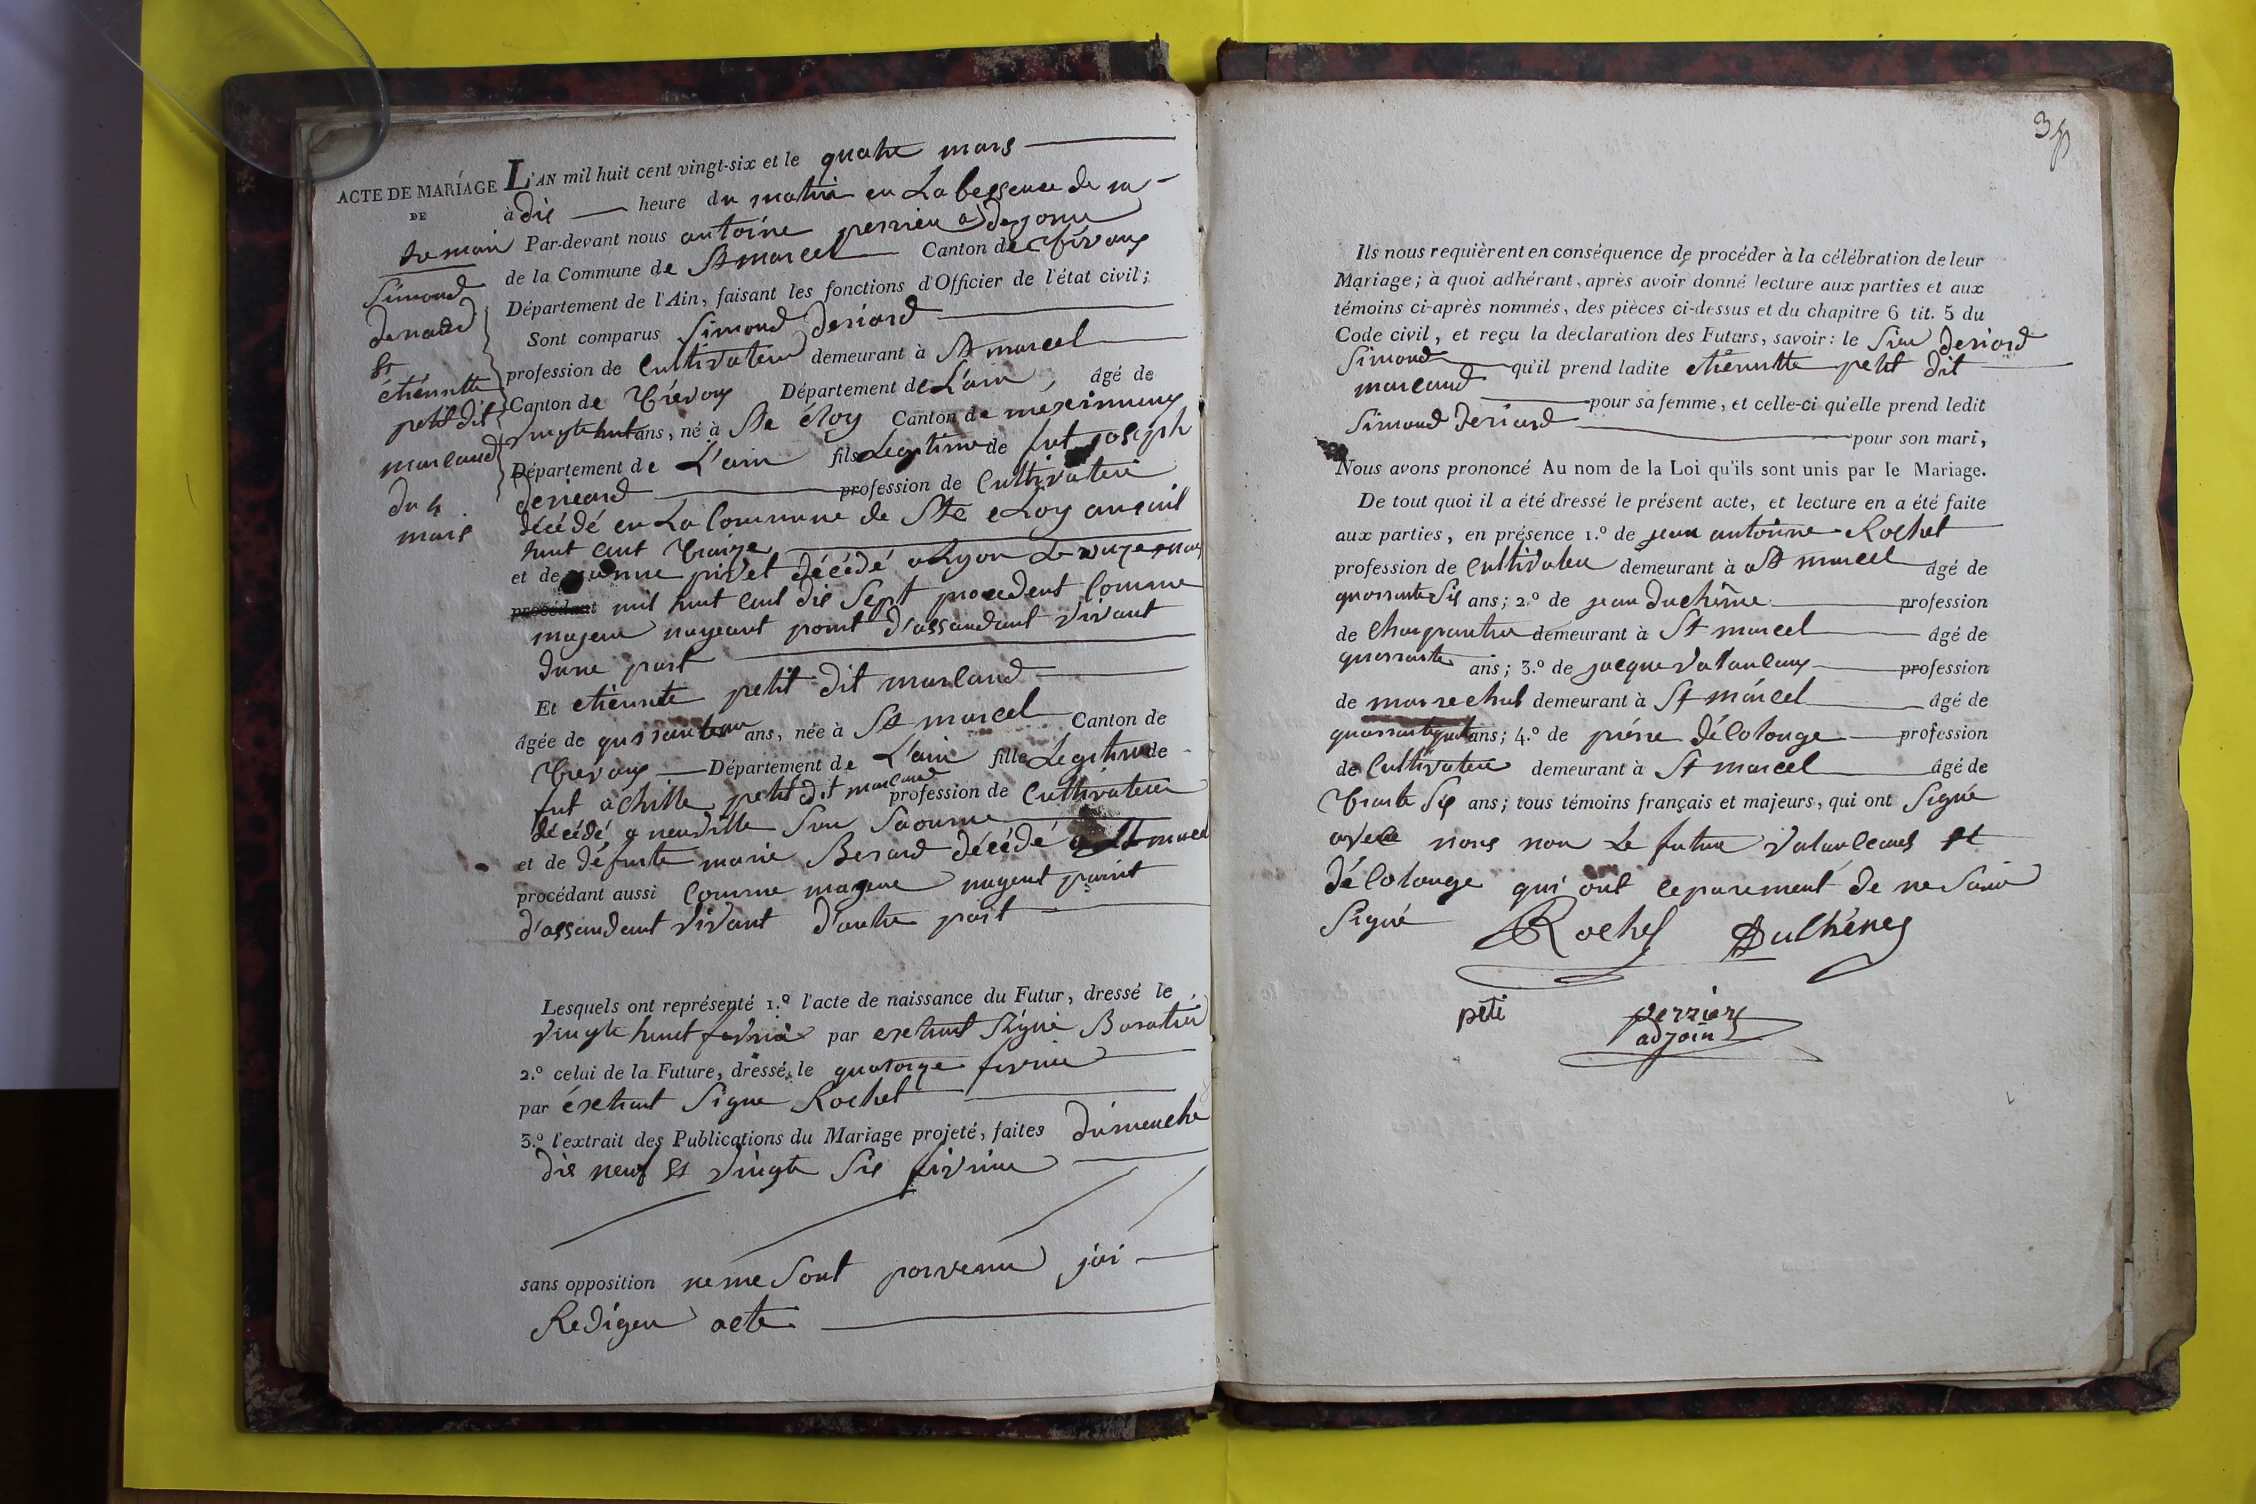 ACTE DE MARIAGE
DE
Simond
deriard
et
étiénnette
petit dit
marland
du 4
mars
L'AN mil huit cent vingt-six et le quatre mars
à dis heure du matin en La bessence de m
le mair Par-devant nous antoine perrier adegoint
de la Commune de St marcel Canton de Trévoux
Département de l'Ain, faisant les fonctions d'Officier de l'état civil;
Sont comparus Simond deriard
profession de Cultivateur demeurant à St marcel
Canton de Trévoux Département de L'ain, âgé de
vingte huit ans, né à Ste éloy Canton de meximieux
Département de L'ain fils Legitime de fut joseph
derieard profession de Cultivateur
décédé en La Commune de Ste eLoy an mil
huit cent traize
et de privet décédé a Lyon Le onze mars
procédant mil huit cent dis Sept procedent Comme
majeur nayeant point d'assandant vivant
dune part
Et etiennete petit dit marland
âgée de ans, née à St marcel Canton de
Trevoux Département de L'ain fille Legitime de
fut achille petit dit marland profession de Cultivateur
décédé a neuville Sur Saonne
et de défunte marie Berard décédé a St marcel
procédant aussi Comme majeure nayent point
d'assandant vivant d'autre part
Lesquels ont représenté 1.º l'acte de naissance du Futur, dressé le
vingte huit fevrier par extrait Signé Baratier
2.º celui de la Future, dressé le quatorze fevrier
par éxetrait Signe Rochet
3.º l'extrait des Publications du Mariage projeté, faites dimenche
dis neuf et vingte sis fivrier
sans opposition ne me Sont parvenu jai
Rediger acte
38
Ils nous requièrent en conséquence de procéder à la célébration de leur
Mariage; à quoi adhérant, après avoir donné lecture aux parties et aux
témoins ci-après nommés, des pièces ci-dessus et du chapitre 6 tit. 5 du
Code civil, et reçu la déclaration des Futurs, savoir: le Sieur deriard
Simond qu'il prend ladite etiénnette petit dit
marland pour sa femme, et celle-ci qu'elle prend ledit
Simond deriard pour son mari,
Nous avons prononcé Au nom de la Loi qu'ils sont unis par le Mariage.
De tout quoi il a été dressé le présent acte, et lecture en a été faite
aux parties, en présence 1.º de jean antoinne Rochet
profession de Cultivateur demeurant à St marcel âgé de
quarrante Sis ans; 2.º de jean duchêne profession
de Charpantier demeurant à St marcel âgé de
quarrante ans; 3.º de jacque valanceaux profession
de marrechal demeurant à St marcel âgé de
ans; 4.º de piérre délolouge profession
de Cultivateur demeurant à St marcel âgé de
trante Sis ans; tous témoins français et majeurs, qui ont Signé
avece nous non Le future valanceaux et
délolouge qui ont separement de ne savoir
Signé Rochet Duchênes
peti perrier
adjoin